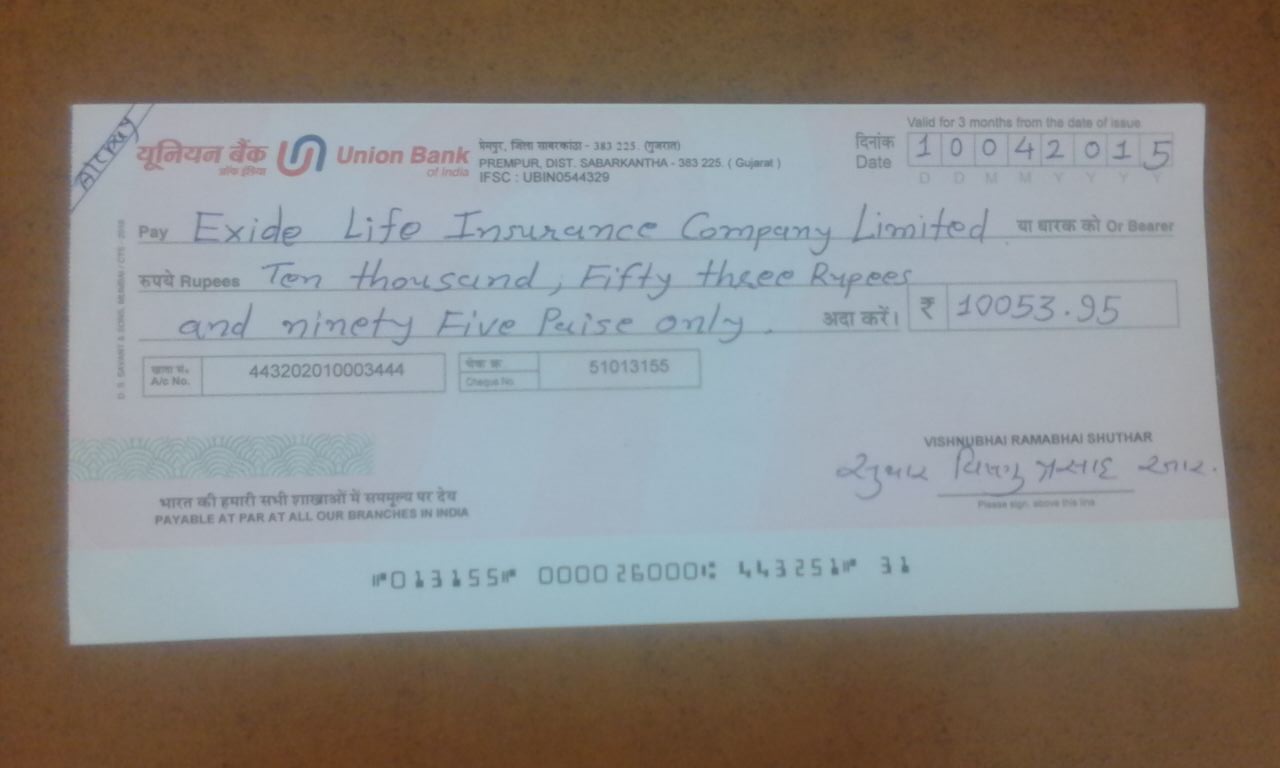 A/C Pay
यूनियन बैंक
ऑफ इंडिया
Union Bank
of India
प्रेमपुर, जिला साबरकांठा - 383 225. (गुजरात)
PREMPUR, DIST. SABARKANTHA - 383 225. ( Gujarat )
IFSC : UBIN0544329
Valid for 3 months from the date of issue.
दिनांक
Date 1 0 0 4 2 0 1 5
D D M M Y Y Y Y
Pay Exide Life Insurance Company Limited या धारक को Or Bearer
रुपये Rupees Ten thousand, Fifty three Rupees
and ninety Five Paise only. अदा करें। ₹ 10053.95
खाता सं.
A/c No. 443202010003444
चेक क्र.
Cheque No. 51013155
VISHNUBHAI RAMABHAI SHUTHAR
Please sign. above this line
भारत की हमारी सभी शाखाओं में सममूल्य पर देय
PAYABLE AT PAR AT ALL OUR BRANCHES IN INDIA
⑈013155⑈ 000026000⑆ 443251⑈ 31